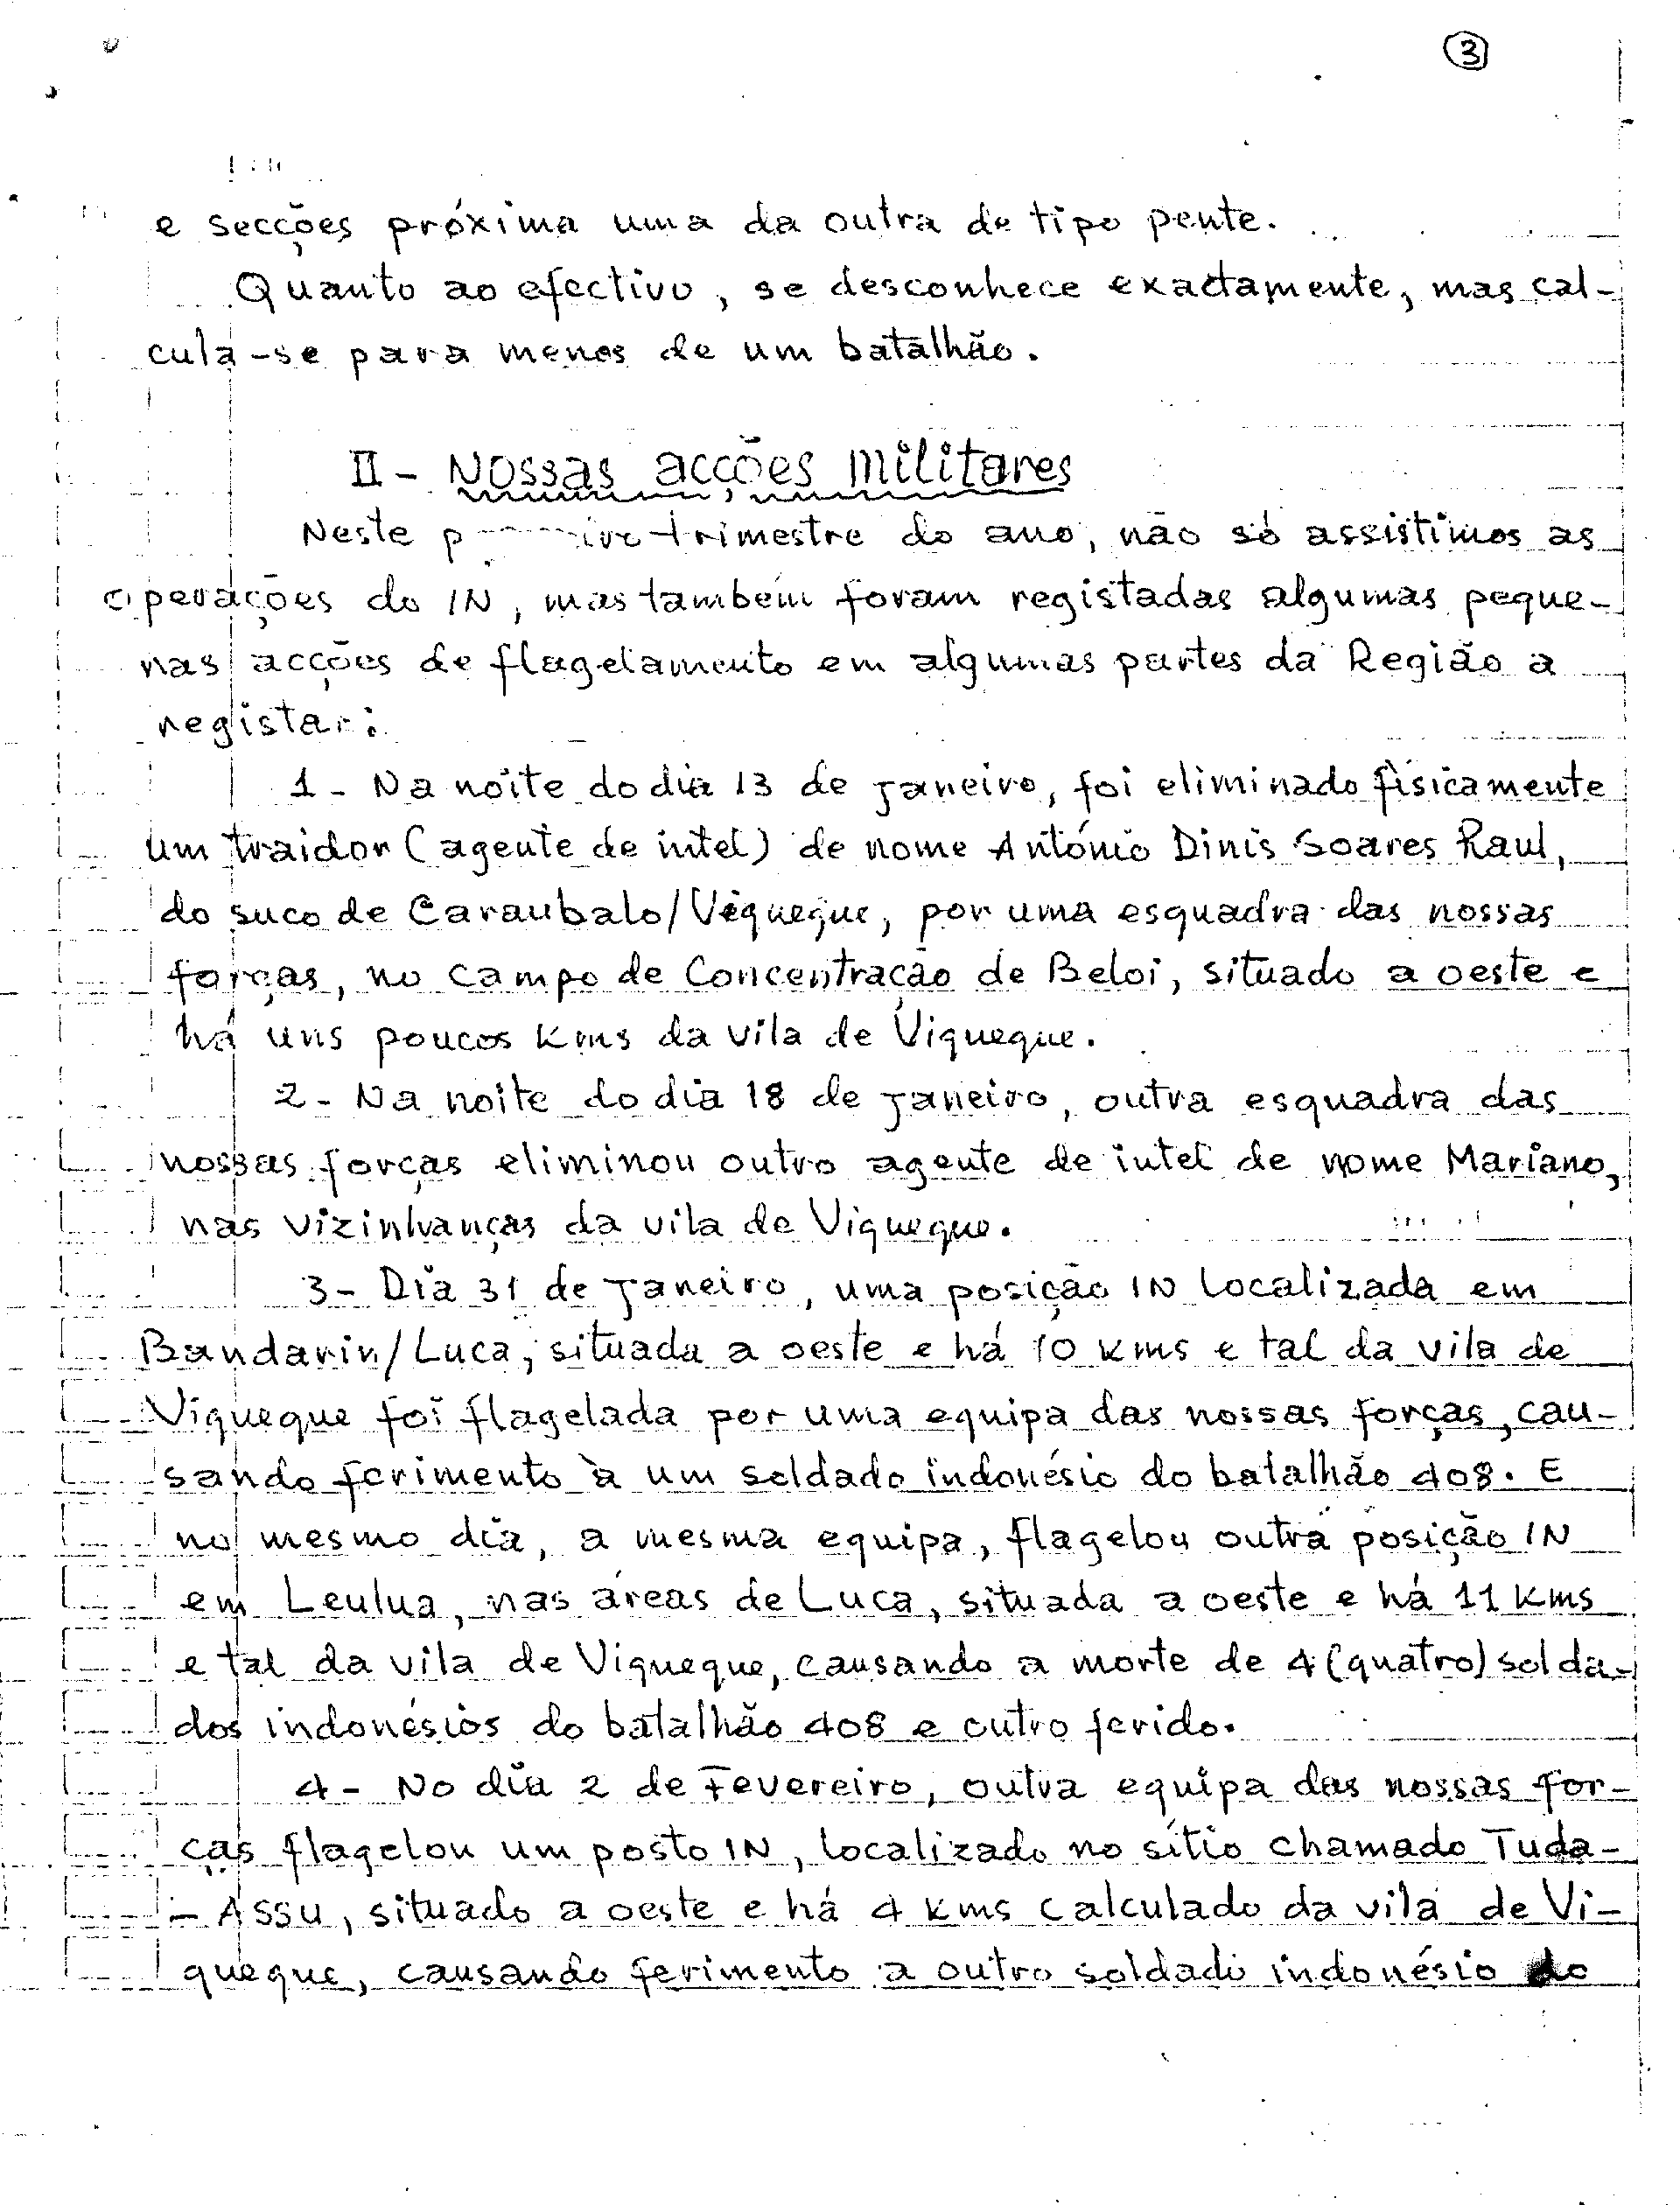 3
e secções próxima uma da outra de tipo pente.
Quanto ao efectivo, se desconhece exactamente, mas cal-
cula-se para menos de um batalhão.
II - Nossas acções militares
Neste trimestre do ano, não só assistimos as
operações do IN, mas também foram registadas algumas peque-
nas acções de flagelamento em algumas partes da Região a
registar:
1 - Na noite do dia 13 de Janeiro, foi eliminado fisicamente
um traidor (agente de intel) de nome António Dinis Soares Raul,
do suco de Caraubalo/Viqueque, por uma esquadra das nossas
forças, no campo de Concentração de Beloi, situado a oeste e
há uns poucos Kms da vila de Viqueque.
2 - Na noite do dia 18 de Janeiro, outra esquadra das
nossas forças eliminou outro agente de intel de nome Mariano,
nas vizinhanças da vila de Viqueque.
3 - Dia 31 de Janeiro, uma posição IN localizada em
Bandarin/Luca, situada a oeste e há 10 Kms e tal da vila de
Viqueque foi flagelada por uma equipa das nossas forças, cau-
sando ferimento à um soldado indonésio do batalhão 408. E
no mesmo dia, a mesma equipa, flagelou outra posição IN
em Leulua, nas áreas de Luca, situada a oeste e há 11 Kms
e tal da vila de Viqueque, causando a morte de 4 (quatro) solda-
dos indonésios do batalhão 408 e outro ferido.
4 - No dia 2 de Fevereiro, outra equipa das nossas for-
ças flagelou um posto IN, localizado no sítio chamado Tuda-
- Assu, situado a oeste e há 4 Kms calculado da vila de Vi-
queque, causando ferimento a outro soldado indonésio do